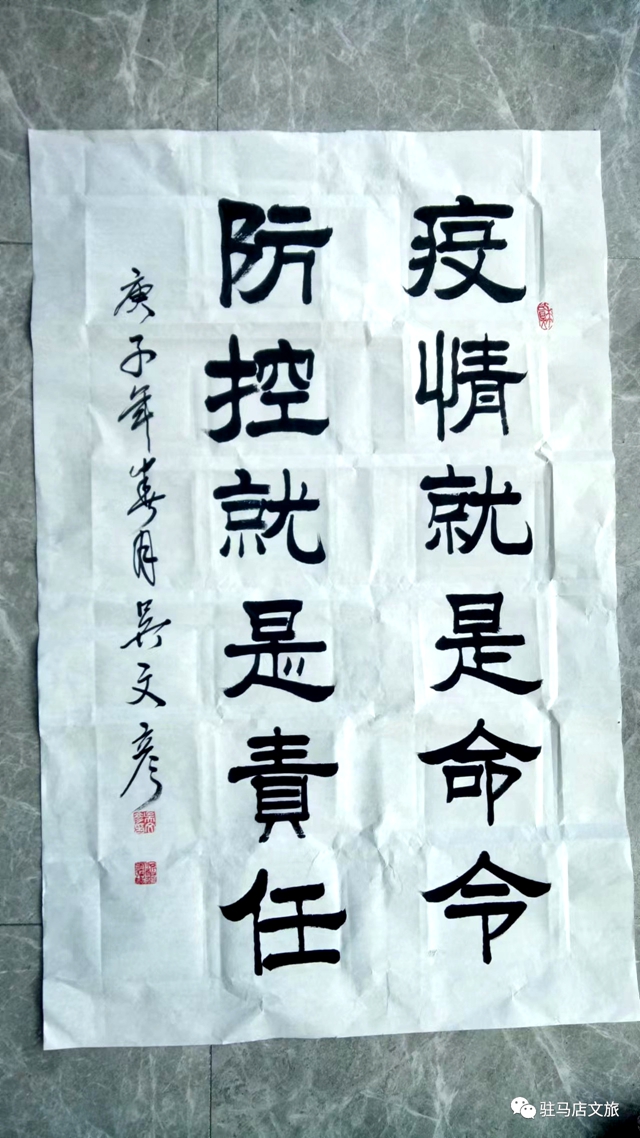 疫情就是命令
防控就是責任
庚子年春月吴文彦
驻马店文旅